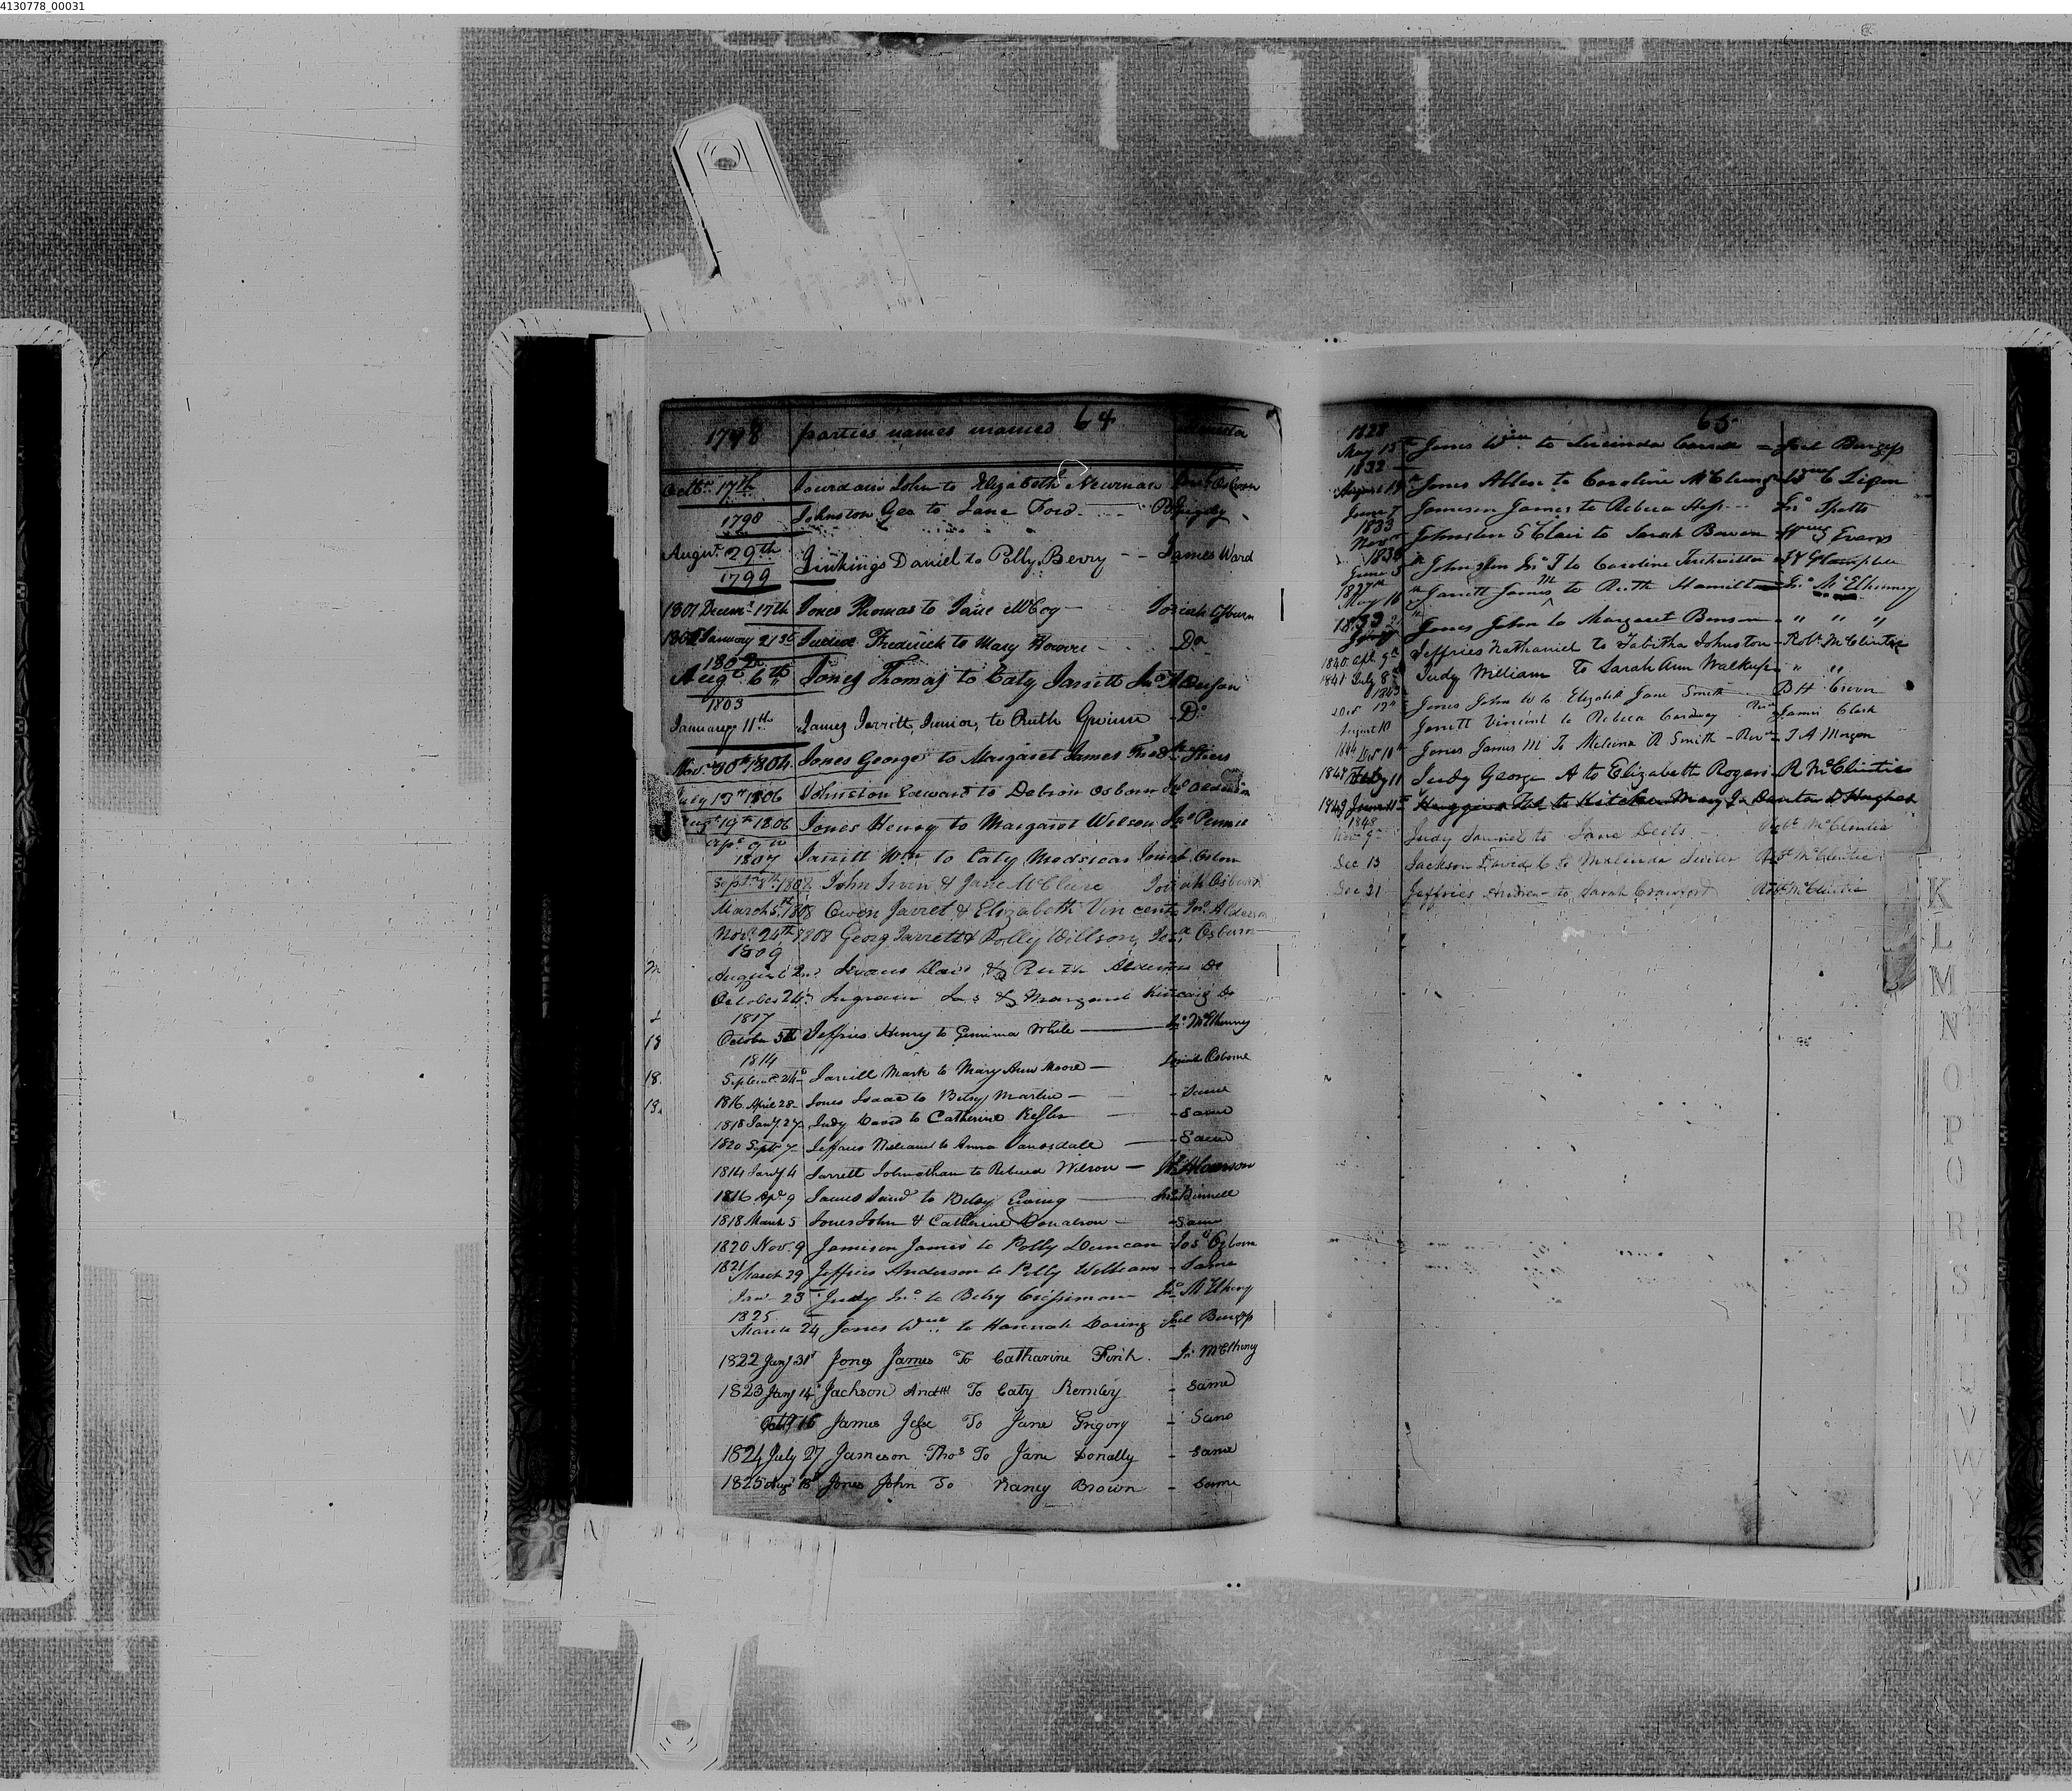 4130778_00031
64
1798 parties names married Minister
Octbr. 17th Jourdain John to Elizabeth Newman
1798 Johnston Geo to Jane Ford
Augus. 29th Jinkings Daniel to Polly Berry - - James Ward
1799
1801 Decem. 17th Jones Thomas to Jane McCoy - Josiah Osburn
January 21st Frederick to Mary - Do
1802
Augt. 6th Jones Thomas to Caty Jarritt Jno. Alderson
1803
January 11th James Jarritt, Junior, to Ruth Gwinn - Do
Nov. 30th 1804 Jones George to Margaret James
July 17th 1806 Johnston Edward to Osborn Jno Alderson
Augt. 19th 1806 Jones Henry to Margaret Wilson Jno. Pennel
J
Apl. 9th
1807 Jarritt Wm to Caty Josiah Osburn
Sept. 1807 John Irvin & Jane McClure Josiah Osburn
March 5th 1808 Owen Jarret & Elizabeth Vincent Jno. Alderson
Nov. 24th 1808 Georg Jarrett & Polly Willson, Osburn
1809
August 2nd & Ruth Alderson Do
October 24 Ingram Jas & Margaret Kincaid Do
1817
October 5th Jeffries Henry to Gemima White — Jno. McElhenney
1814
Septem. 24th Jarrell Mark to Mary Ann Moore — Josiah Osborne
1816 April 28 - Jones Isaac to Betsy Martin - - Same
1818 Jany. 27 Judy David to Catherine Kesler - Same
1820 Sept. 7 - Jeffries William to Anna Vansdale — - Same
1814 Jany 4 Jarrett Johnathan to Rebecca Wilson — Jno. Alderson
1816 Apl. 9 James to Betsy Ewing — Jno. Pinnell
1818 March 5 Jones John & Catherine Donalson - - Same
1820 Nov. 9 Jamison James to Polly Duncan Jos. Osborn
1821
March 29 Jeffries Anderson to Polly William - Same
Jan. 23 Judy Jno. to Betsy Crissman Jno. McElheny
1825
March 24 Jones Wm. to Hannah Joel Burgess
1822 Jany 31st Jones James To Catharine Jno. McElheny
1823 Jany 14 Jackson Andw To Caty Remley - Same
16 James Jesse To Jane Grigory - Same
1824 July 27 Jameson Thos To Jane Donally - Same
1825 Augt 18 Jones John To Nancy Brown - Same
65
1828
May 15th Jones Wm to Lucinda - Joel Burgess
1832
August Jones Allen to Caroline McClung - Wm C Ligon
June 7 Jameson James to Rebeca Hess - - Jno Spotts
1833
Novr Johnston S Clair to Sarah Bowen
June 3 Johnston Jno. T to Caroline
1837
May 16th Jarrett James M to Ruth Hamilton - Jno. McElhenney
Jones John to Margaret Benson - " " "
1840 Apl 9th Jeffries Nathaniel to Tabitha Johnston - Robt. McClintic
1841 July 8th Judy William To Sarah Ann Walkup - " "
1843
Jones John W to Elizabeth Jane Smith
August 10 Jarrett Vincent to Rebeca James Clark
1844 Oct 10th Jones James M To Melissa R Smith - Revd - T A Morgan
1847 Feby 11 Judy George A to Elizabeth Rogers R McClintic
1849 June
1848
Nov. 9th Judy Samuel to Jane Deits - Robt. McClintic
Dec 13 Jackson David C to Malinda Robt McClintic
Dec 21 Jeffries Andrew to Sarah Crawford Robt McClintic
K
L
M
N
O
P
Q
R
S
T
U
V
W
Y